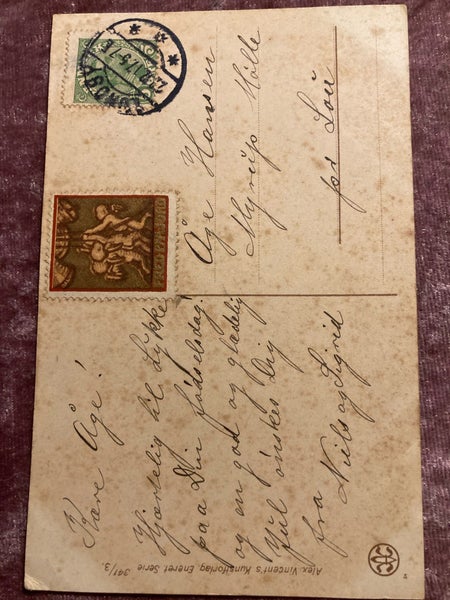 Kære Åge!
Hjærtelig til Lykke
paa Din födselsdag!
og en god og glædelig
Jul önskes Dig
fra Niels og Sigrid
Åge Hansen
Myrup Mölle
pr Lou
Alex. Vincent's Kunstforlag, Eneret Serie 341/3.